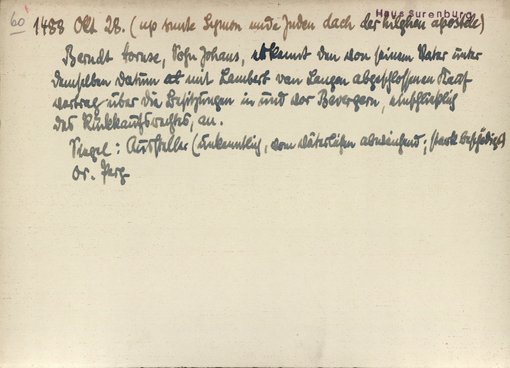 60
Haus Surenburg
1488 Okt 28. (up sunte Symon unde Juden dach der hilghen apostele)
Berndt Sohn Johans, erkennt den von seinem Vater unter
demselben Datum mit Lambert van Langen abgeschlossenen Kauf
vertrag über die Besitzungen in und vor Bevergern, einschließlich
des Rückkaufsrechtes, an.
Siegel: Aussteller (erkenntlich, vom väterlichen abweichend; stark beschädigt)
Or. Perg.